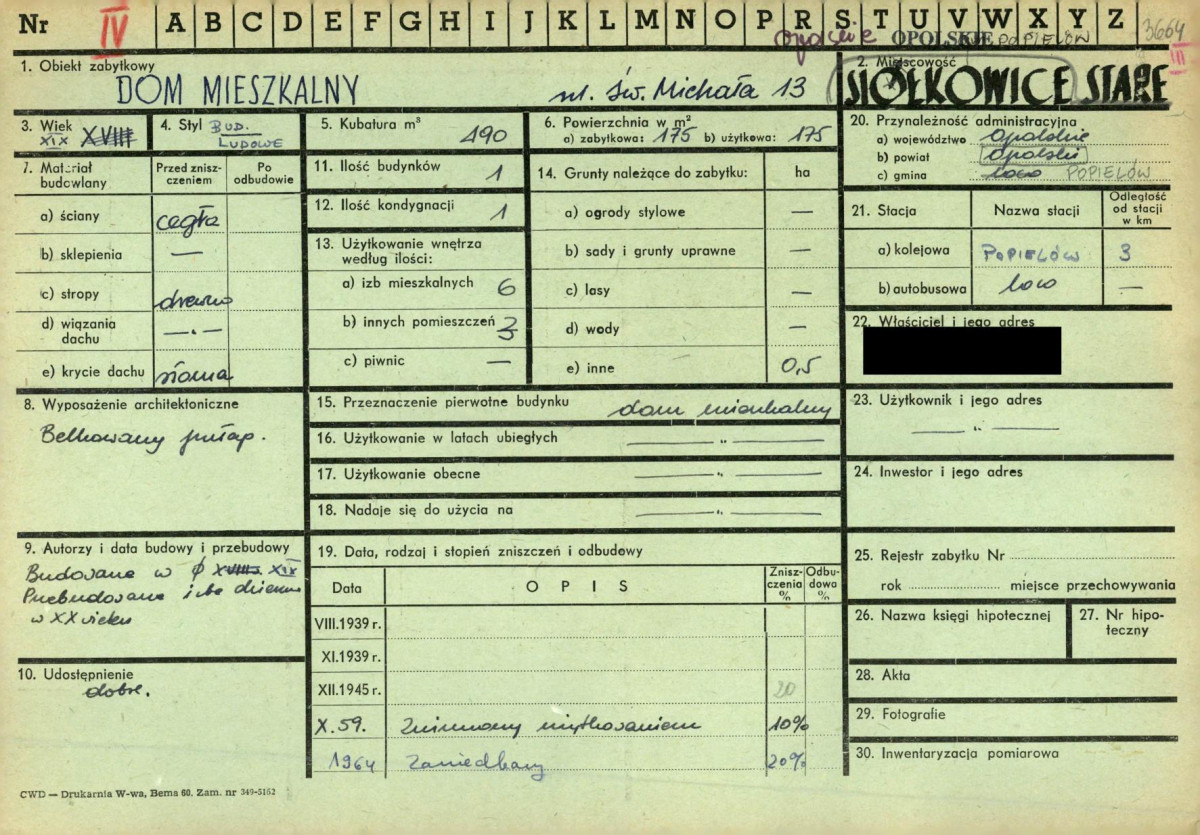 Nr IV A B C D E F G H I J K L M N O P R S T U V W X Y Z 3664
opolskie OPOLSKIE POPIELÓW III
1. Obiekt zabytkowy
DOM MIESZKALNY ul. Św. Michała 13
2. Miejscowość
SIOŁKOWICE STARE
3. Wiek
XIX XVIII
4. Styl BUD.
LUDOWE
5. Kubatura m³
190
6. Powierzchnia w m²
a) zabytkowa: 175 b) użytkowa: 175
7. Materiał budowlany
Przed zniszczeniem
Po odbudowie
a) ściany cegła
b) sklepienia —
c) stropy drewno
d) wiązania dachu —„—
e) krycie dachu słoma
8. Wyposażenie architektoniczne
Belkowany pułap.
9. Autorzy i data budowy i przebudowy
Budowane w XVIII XIX
Przebudowane
w XX wieku
10. Udostępnienie
dobre.
11. Ilość budynków 1
12. Ilość kondygnacji 1
13. Użytkowanie wnętrza
według ilości:
a) izb mieszkalnych 6
b) innych pomieszczeń 3
c) piwnic —
14. Grunty należące do zabytku: ha
a) ogrody stylowe —
b) sady i grunty uprawne —
c) lasy —
d) wody —
e) inne 0,5
15. Przeznaczenie pierwotne budynku dom mieszkalny
16. Użytkowanie w latach ubiegłych —„—
17. Użytkowanie obecne —„—
18. Nadaje się do użycia na —„—
19. Data, rodzaj i stopień zniszczeń i odbudowy
Data OPIS Zniszczenia % Odbudowa %
VIII.1939 r.
XI.1939 r.
XII.1945 r. 20
X.59. Zniszczony użytkowaniem 10%
1964 Zaniedbany 20%
20. Przynależność administracyjna
a) województwo opolskie
b) powiat opolski
c) gmina loco POPIELÓW
21. Stacja Nazwa stacji Odległość od stacji w km
a) kolejowa POPIELÓW 3
b) autobusowa loco —
22. Właściciel i jego adres
23. Użytkownik i jego adres
—„—
24. Inwestor i jego adres
25. Rejestr zabytku Nr
rok miejsce przechowywania
26. Nazwa księgi hipotecznej
27. Nr hipoteczny
28. Akta
29. Fotografie
30. Inwentaryzacja pomiarowa
CWD — Drukarnia W-wa, Bema 60. Zam. nr 349-5162